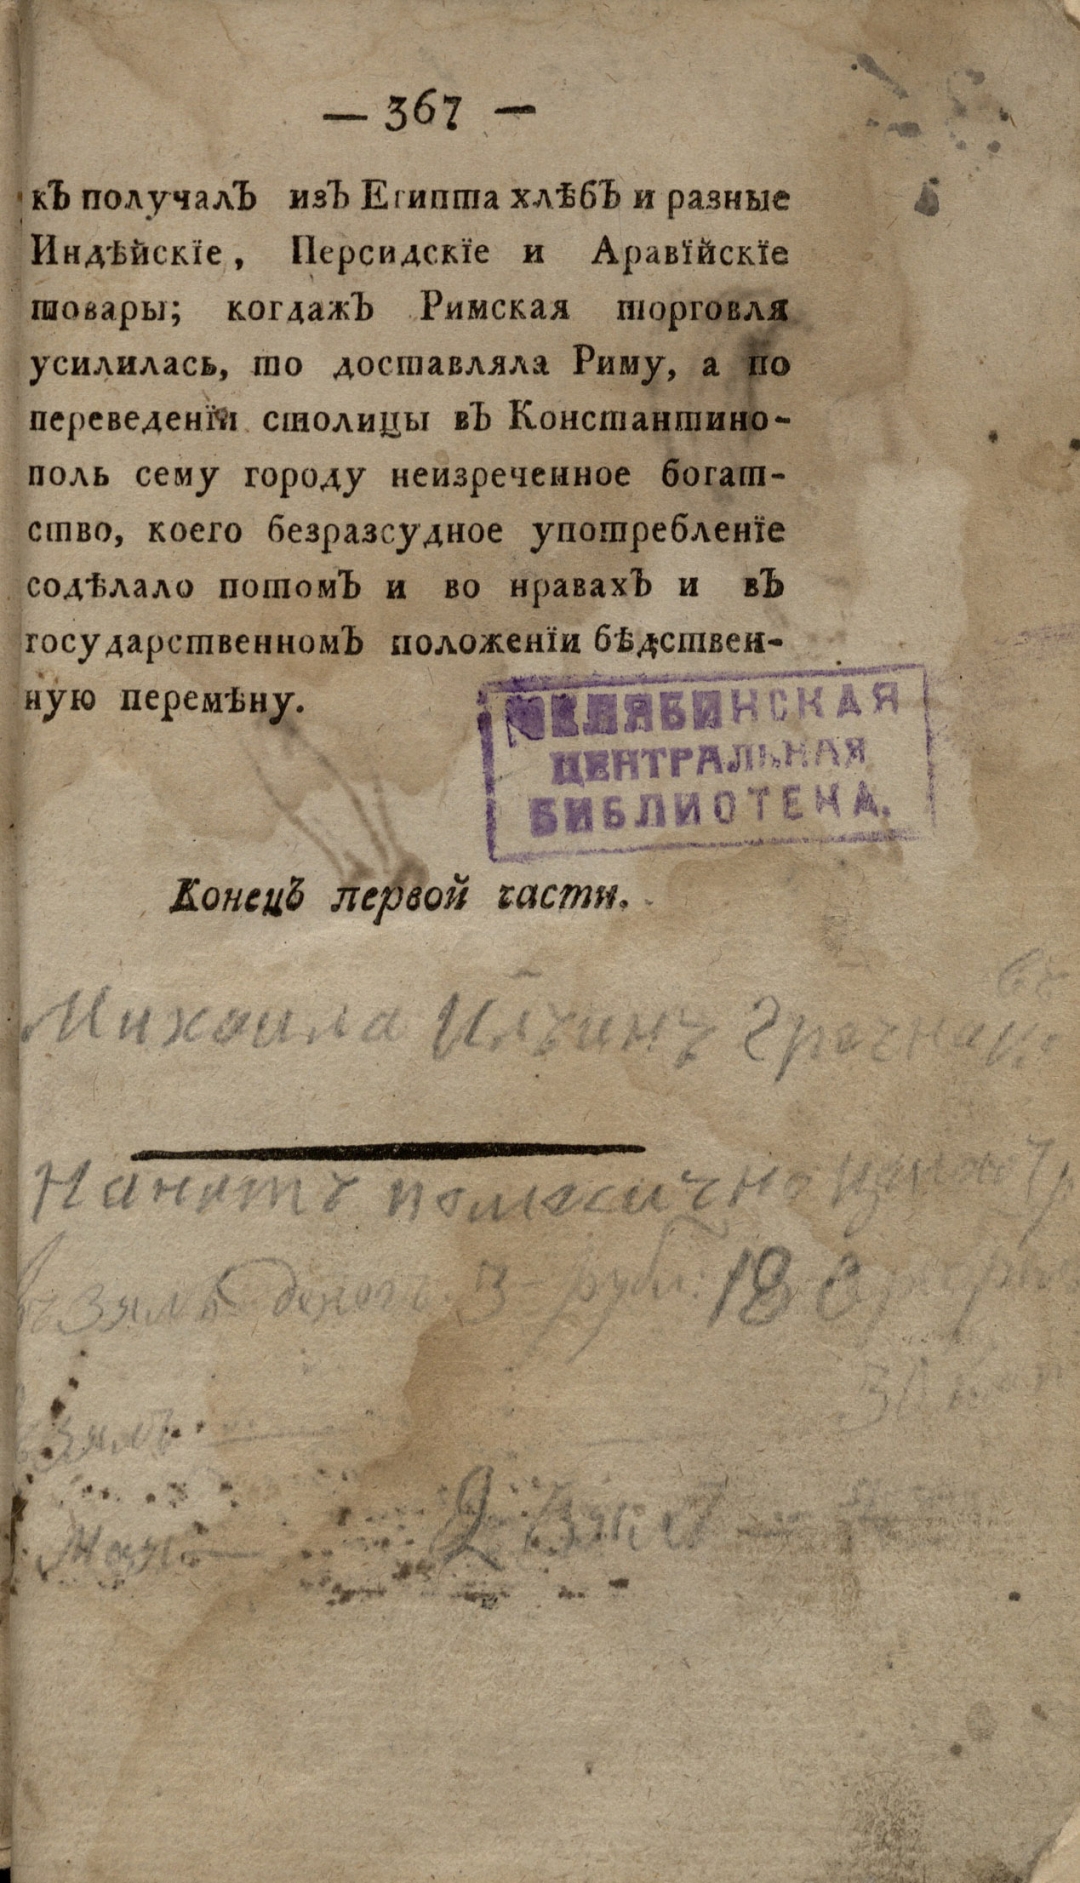 — 367 —
кЪ получалЪ изЪ Египта хлѣбЪ и разные
Индѣйскїе, Персидскїе и Аравїйскїе
товары; когдажЪ Римская торговля
усилилась, то доставляла Риму, а по
переведенїи столицы вЪ Константино-
поль сему городу неизреченное богат-
ство, коего безразсудное употребленїе
содѣлало потомЪ и во нравахЪ и вЪ
государственномЪ положенїи бѣдствен-
ную перемѣну.
ЧЕЛЯБИНСКАЯ
ЦЕНТРАЛЬНАЯ
БИБЛИОТЕКА.
КонецЪ первой части.
Михаила
Нанятъ помесично
взялъ денегъ 3 рубл:
взялъ